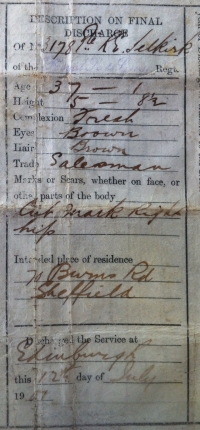 DESCRIPTION ON FINAL
DISCHARGE
Of No. R.E. Selkirk
of the Regt.
Age 37 - 1
Height 5 - 8½
Complexion Fresh
Eyes Brown
Hair Brown
Trade Salesman
Marks or Scars, whether on face, or
other parts of the body
Cut mark Right
hip
Intended place of residence
Burns Rd
Sheffield
Discharged the Service at
Edinburgh
this 12th day of July
19